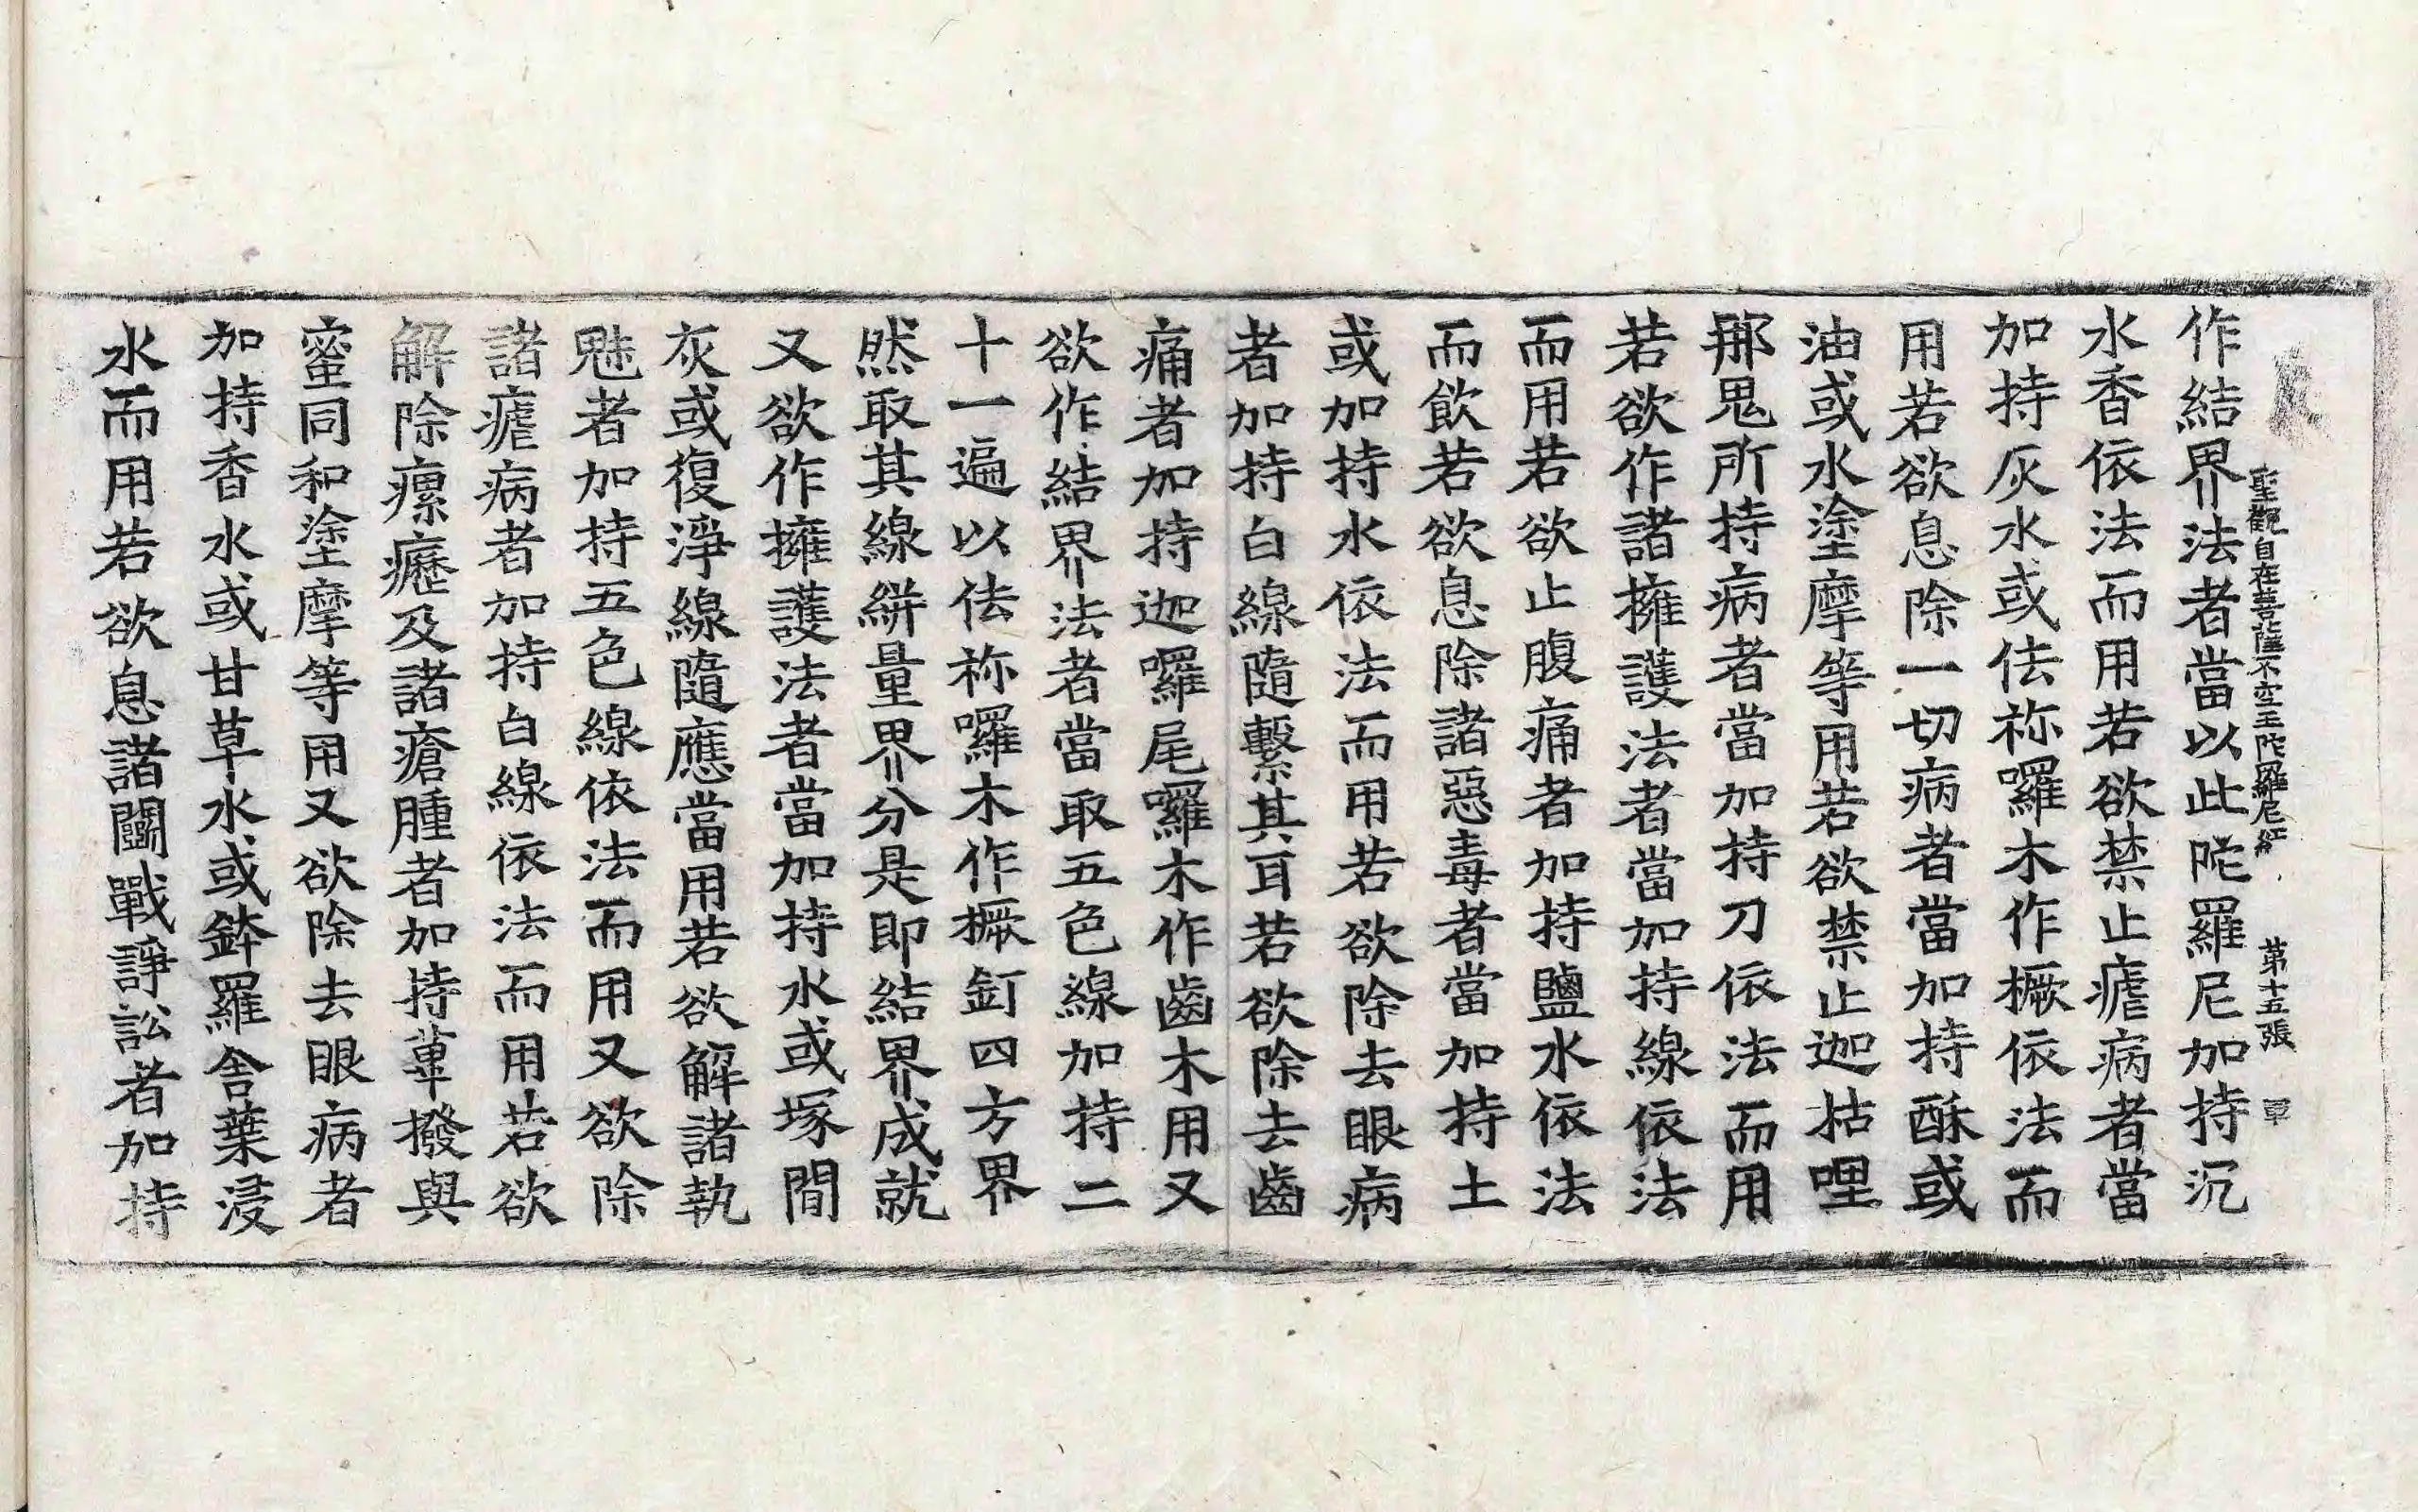 聖觀自在菩薩不空王陁羅尼經 第十五張 覃
作結界法者當以此陁羅尼加持沉
水香依法而用若欲禁止瘧病者當
加持灰水或佉祢囉木作橛依法而
用若欲息除一切病者當加持酥或
油或水塗摩等用若欲禁止迦拈哩
那鬼所持病者當加持刀依法而用
若欲作諸擁護法者當加持線依法
而用若欲止腹痛者加持鹽水依法
而飲若欲息除諸惡毒者當加持土
或加持水依法而用若欲除去眼病
者加持白線隨繫其耳若欲除去齒
痛者加持迦囉尾囉木作齒木用又
欲作結界法者當取五色線加持二
十一遍以佉祢囉木作橛釘四方界
然取其線絣量界分是即結界成就
又欲作擁護法者當加持水或塚間
灰或復淨線隨應當用若欲解諸執
魅者加持五色線依法而用又欲除
諸瘧病者加持白線依法而用若欲
解除瘰癧及諸瘡腫者加持蓽撥與
蜜同和塗摩等用又欲除去眼病者
加持香水或甘草水或鉢羅舍葉浸
水而用若欲息諸鬬戰諍訟者加持